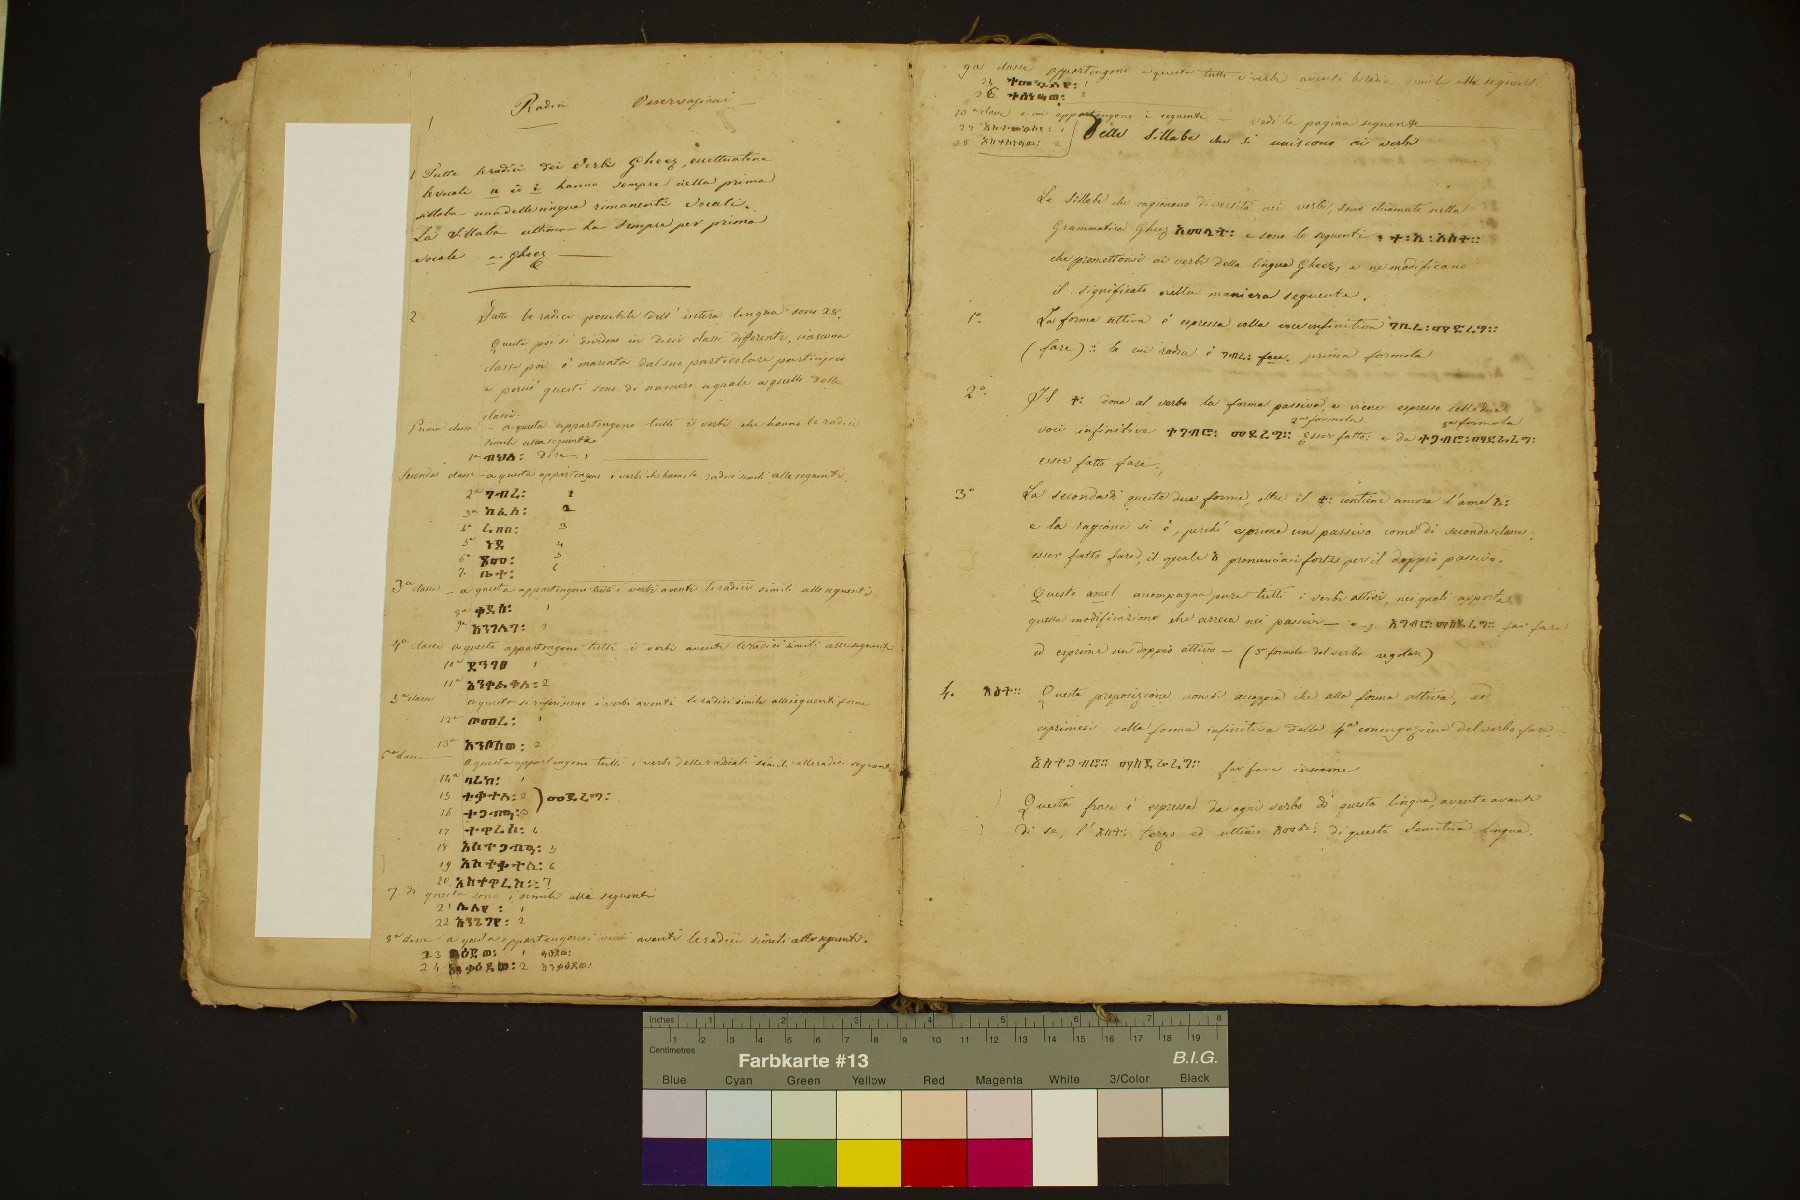 Radici Osservazioni
1
1 Tutte le radici dei Verbi Gheez, eccettuatone
le vocali u ed i hanno sempre nella prima
sillaba una delle cinque rimanenti vocali.
La Sillaba ultima ha sempre per prima
vocale a Gheez
2 Tutte le radici possibili dell' intera lingua sono 28.
Queste poi si dividono in dieci classi differenti, ciascuna
classe poi è marcata dal suo particolare participio
e perciò questi sono di numero uguale a quello delle
classi.
Prima classe - a questa appartengono tutti i verbi che hanno le radici
simili alla seguente
1a ብህለ: Dire 1
Seconda classe - a questa appartengono i verbi che hanno le radici simili alle seguenti.
2a ግብረ: 1
3a ከፈለ: 2
4a ረ 3
5a ነደ 4
6a ጾመ: 5
7. ሴተ: 6
3a classe - a questa appartengono tutti i verbi aventi le radici simili alle seguenti
8a ቀደሰ: 1
9a አንገለገ: 2
4a classe a questa appartengono tutti i verbi aventi le radici simili alle seguenti
10a 1
11a 2
5a classe a questo si riferiscono i verbi aventi le radici simili alle seguenti forme
12a ጦመረ: 1
13a 2
6a classe a questa appartengono tutti i verbi delle radicali simili alle radici seguenti
14a ባረከ: 1
15 ተቃተለ: 2 መደረግ:
16 3
17 ተዋረሰ: 4
18 5
19 አስተቃተለ: 6
20. አስተዋረሰ: 7
7. di questa sono i simili alle seguenti
21 ሌለየ: 1
22 2
8a classe a questa appartengono i verbi aventi le radici simili alle seguenti.
23 1
24 2
9a classe appartengono a questa tutti i verbi aventi le radici simili alle seguenti.
25 1
26 2
10a classe a cui appartengono i seguenti - Vedi la pagina seguente
27 1
28 2
Delle Sillabe che si uniscono ai verbi
Le Sillabe che cagionano diversità nei verbi, sono chiamate nella
Grammatica Gheez አመላት: e sono le seguenti ተ: አ: አስተ::
che premettonsi ai verbi della lingua Gheez, e ne modificano
il significato nella maniera seguente.
1o. La forma attiva è espressa colla voce infinitiva ገቢረ: ማድረግ::
(fare):: la cui radice è ገብረ: fece. prima formola
2o. Il ተ: dona al verbo la forma passiva, e viene espresso colle due
2a formola 3a formola
voci infinitive ተገብሮ: መደረግ:: Esser fatto: e da ተጋብሮ: መደራረግ:
esser fatto fare.
3o La seconda di queste due forme, oltre il ተ: contiene ancora l'amel አ:
e la ragione si è, perchè esprime un passivo come di seconda classe.
esser fatto fare, il quale è pronunciasi forte, per il doppio passivo.
Questo amel accompagna pure tutti i verbi attivi, nei quali apporta
quella modificazione che arreca nei passivi - e. g. አግብሮ: ማስደረግ:: far fare
ed esprime un doppio attivo - (5a formola del verbo regolare)
4. አስተ:: Questa preposizione non si accoppia che alla forma attiva, ed
esprimesi colla forma infinitiva della 4a coniugazione del verbo fare.
አስተጋብሮ:: ማስደራረግ:: far fare insieme
Questa frase è espressa da ogni verbo di questa lingua, avente avanti
di se, l' አስተ: terzo ed ultimo አመል: di questa Semitica lingua.
Inches 1 2 3 4 5 6 7 8
Centimetres 1 2 3 4 5 6 7 8 9 10 11 12 13 14 15 16 17 18 19
Farbkarte #13 B.I.G.
Blue Cyan Green Yellow Red Magenta White 3/Color Black